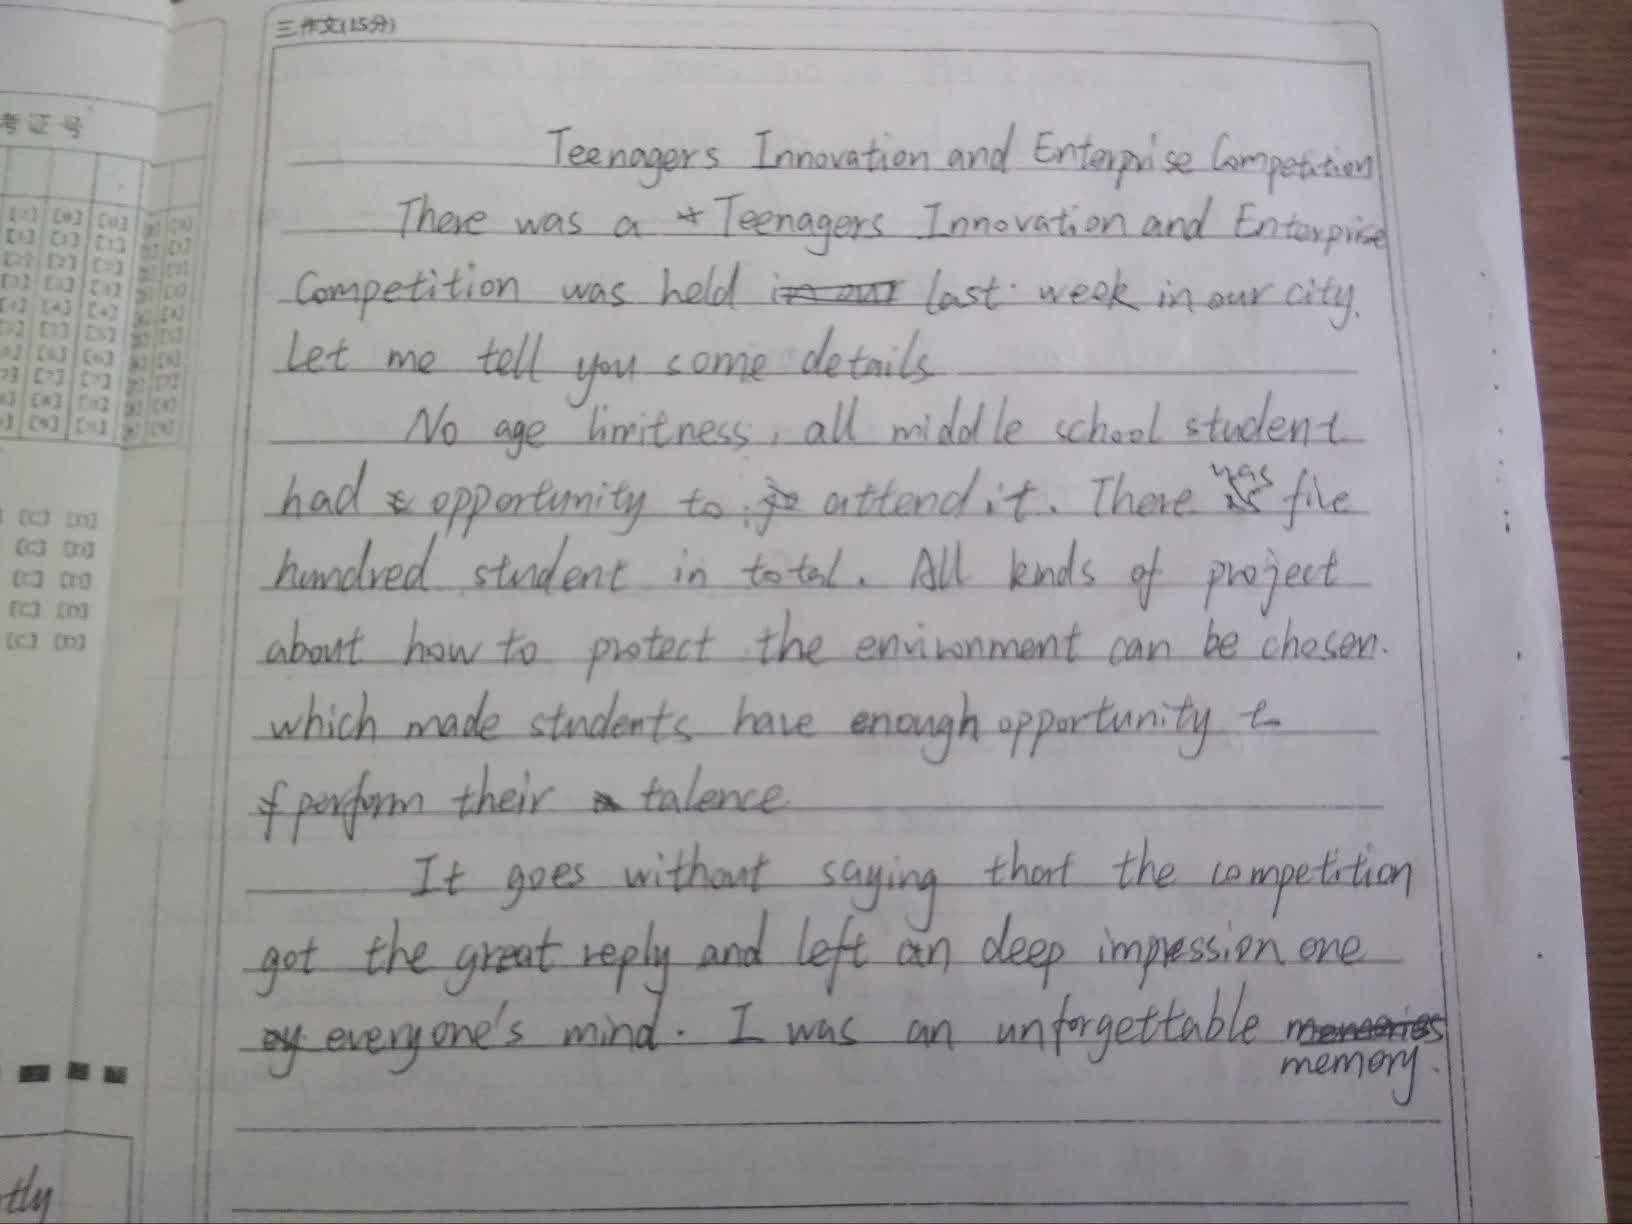 三 作文(15分)
考证号
Teenagers Innovation and Enterprise Competition
There was a Teenagers Innovation and Enterprise
Competition was held in our last week in our city.
Let me tell you some details
No age limitness, all middle school student
had opportunity to attend it. There was five
hundred student in total. All kinds of project
about how to protect the environment can be chosen.
which made students have enough opportunity t
perform their talence
It goes without saying that the competition
got the great reply and left an deep impression one
everyone's mind. I was an unforgettable memories
memory.
[C] [D]
[C] [D]
[C] [D]
[C] [D]
[C] [D]
tly